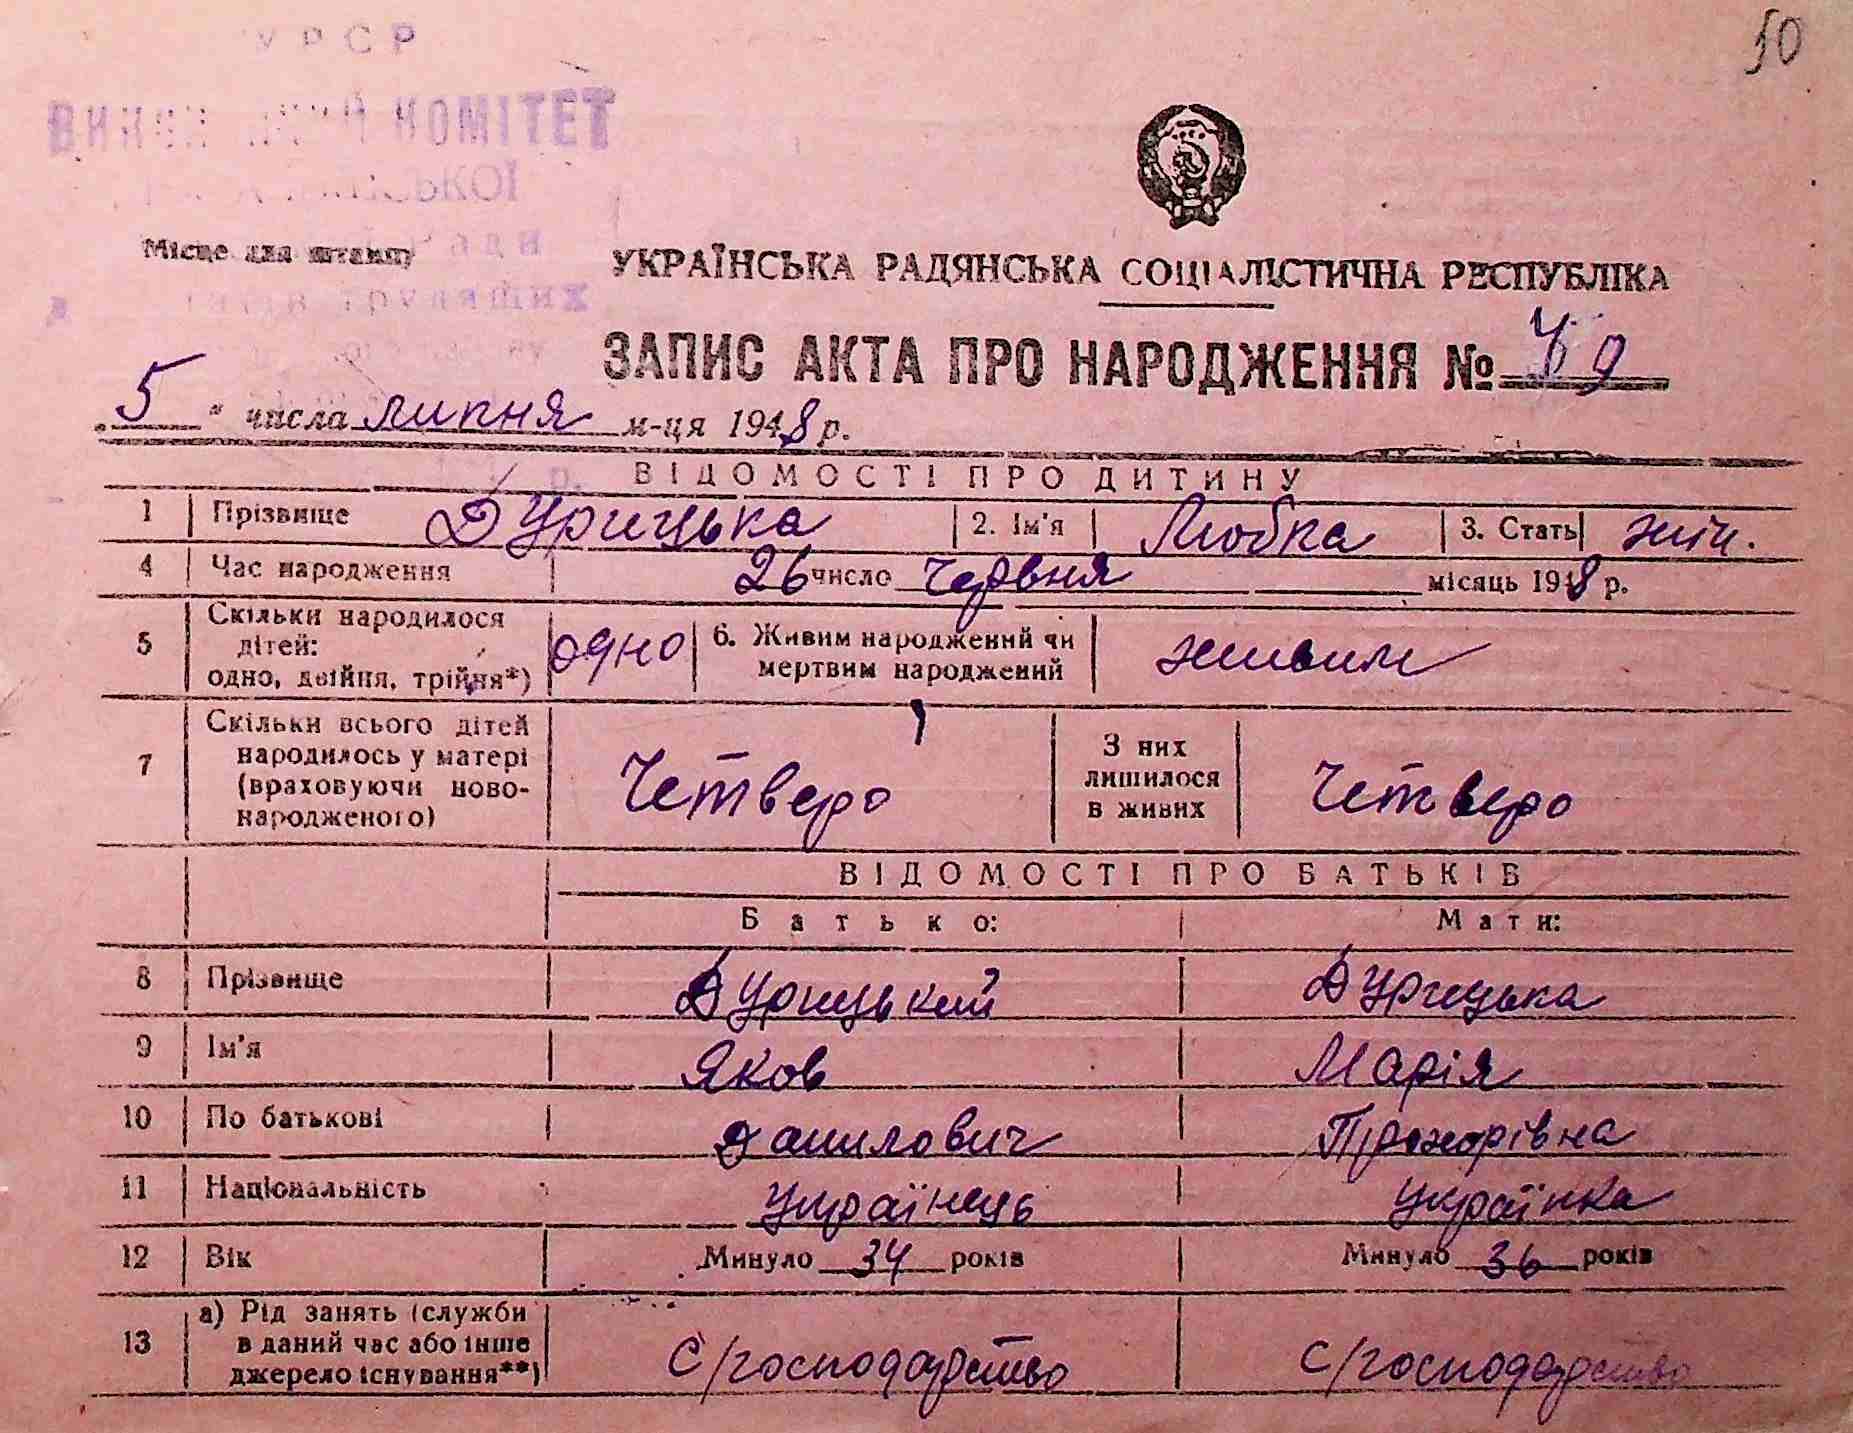 50
УРСР
КОМІТЕТ
Місце для штампу
УКРАЇНСЬКА РАДЯНСЬКА СОЦІАЛІСТИЧНА РЕСПУБЛІКА
ЗАПИС АКТА ПРО НАРОДЖЕННЯ №
„5" числа липня м-ця 1948 р.
ВІДОМОСТІ ПРО ДИТИНУ
1 Прізвище Дурицька 2. Ім'я Любка 3. Стать жін.
4 Час народження 26 число червня місяць 1948 р.
5 Скільки народилося дітей: одно, двійня, трійня*) одно 6. Живим народжений чи мертвим народжений живим
7 Скільки всього дітей народилось у матері (враховуючи ново-народженого) Четверо З них лишилося в живих Четверо
ВІДОМОСТІ ПРО БАТЬКІВ
Батько: Мати:
8 Прізвище Дурицький Дурицька
9 Ім'я Яков Марія
10 По батькові Данилович Прохорівна
11 Національність Українець Українка
12 Вік Минуло 34 років Минуло 36 років
13 а) Рід занять (служби в даний час або інше джерело існування**) С/господарство С/господарство